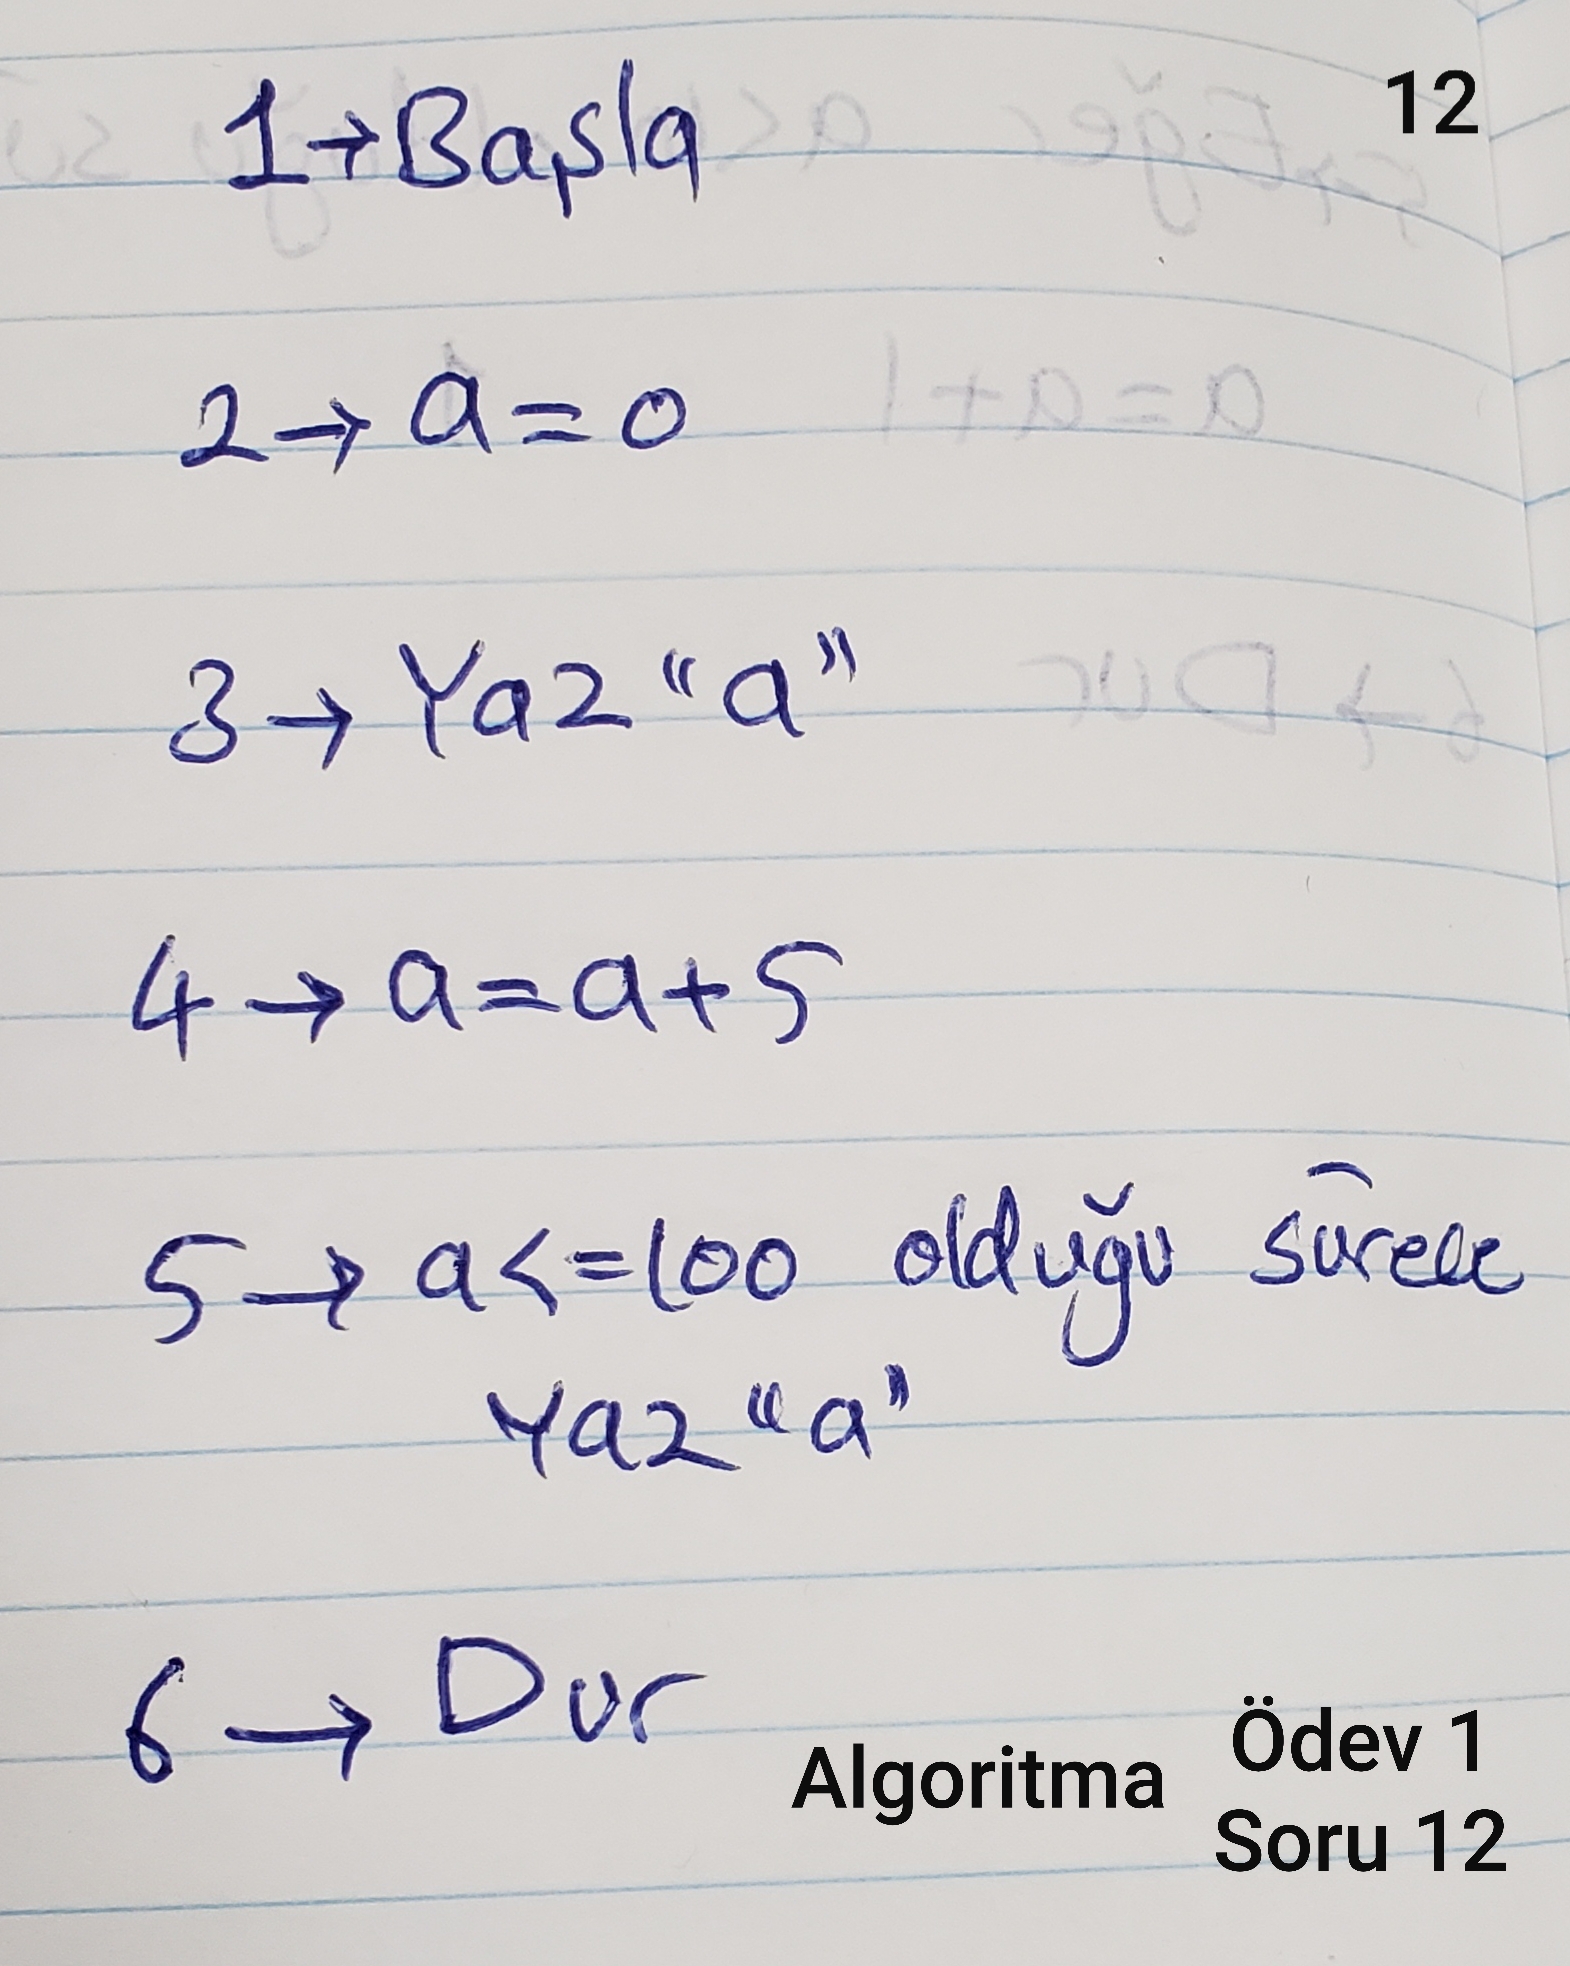 12
1→Başla
2→a=0
3→Yaz "a"
4→a=a+5
5→a<=100 olduğu sürece
Yaz "a"
6→Dur
Algoritma
Ödev 1
Soru 12